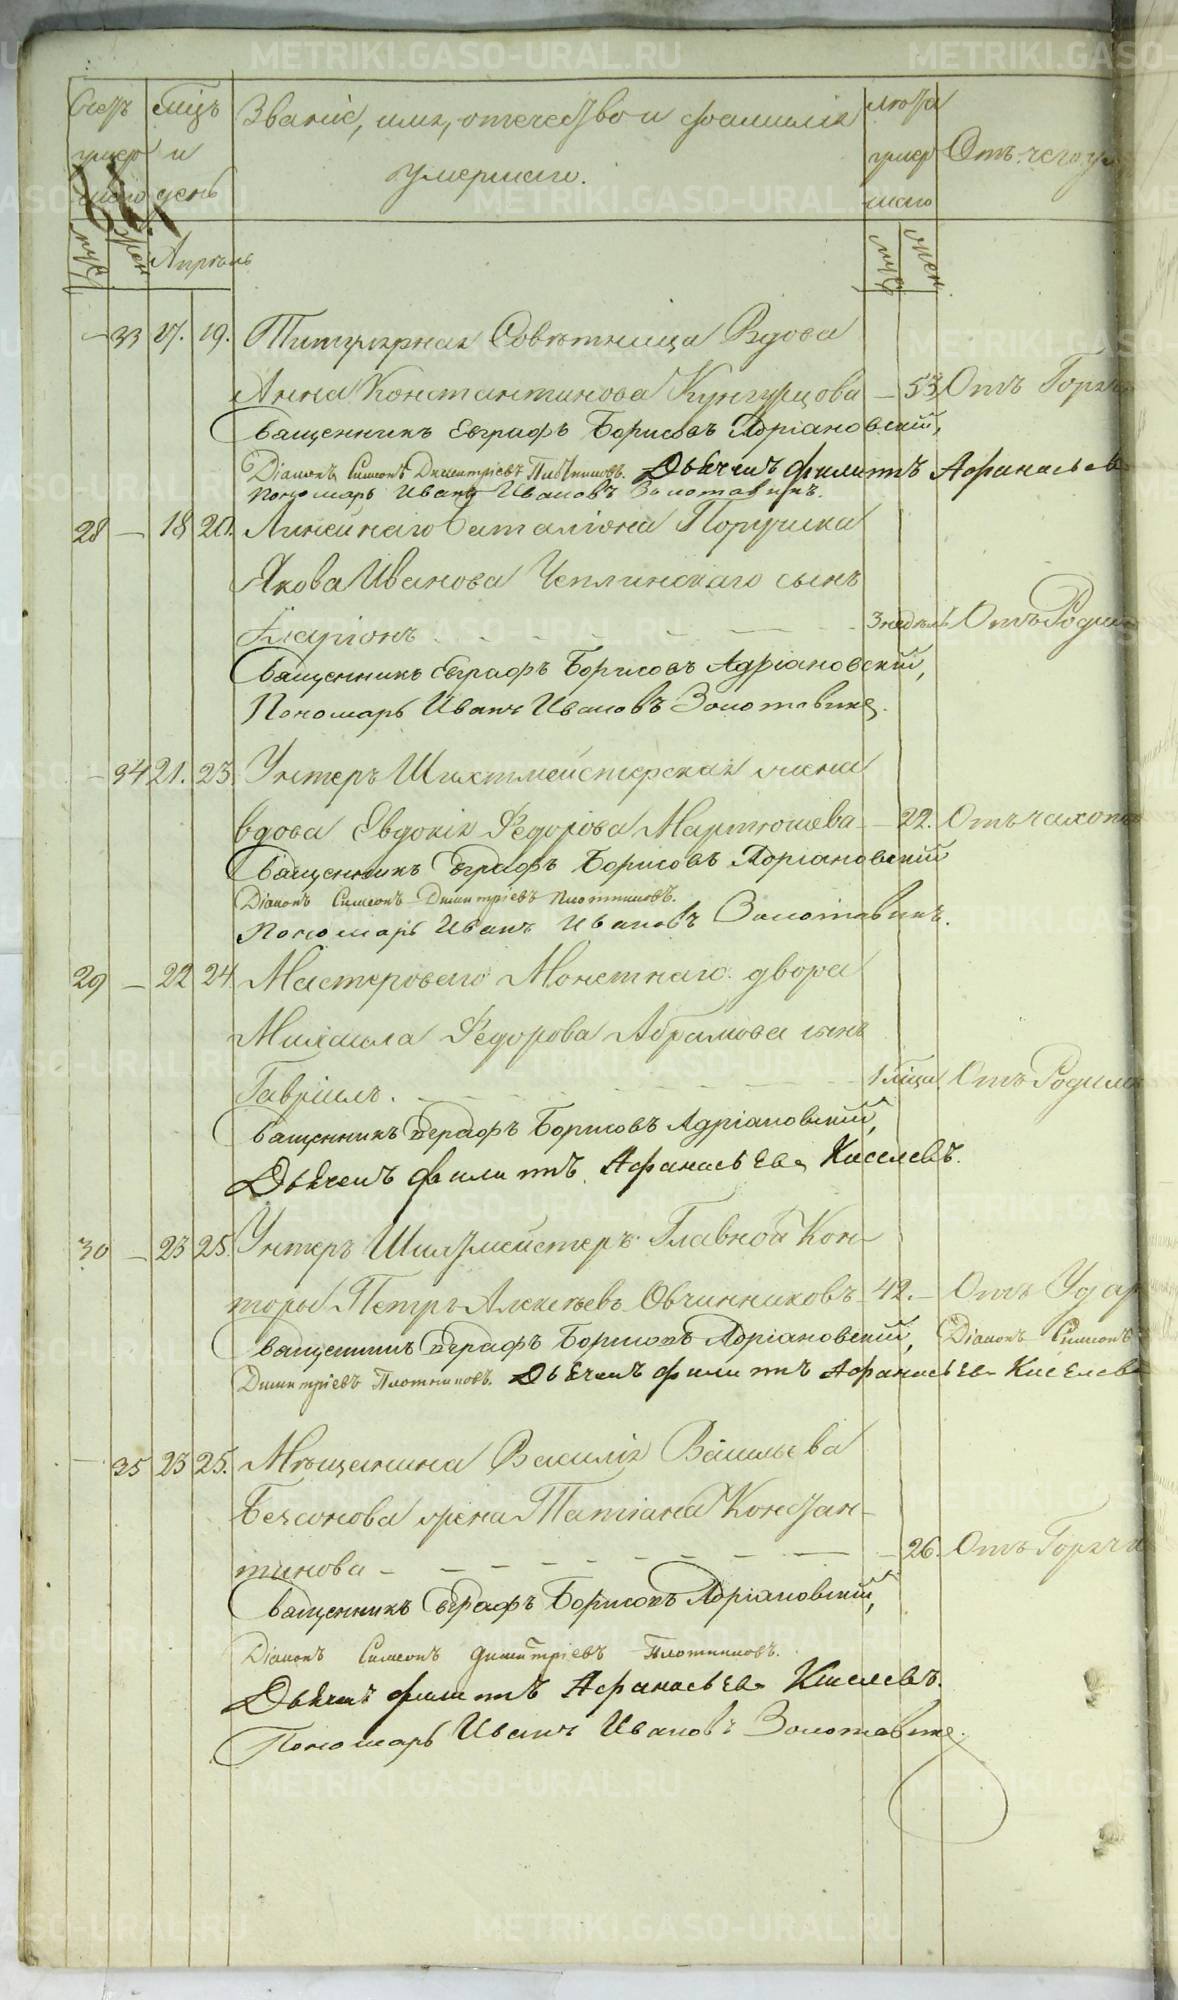 METRIKI.GASO-URAL.RU
Счетъ мѣцъ Званіе, имя, отечество и фамилія лѣта
умер и Отъ чего ум
умершаго.
шаго день шаго
муж жен Апрѣль муж жен.
— 33 17. 19. Титулярная Совѣтница Вдова
Анна Константинова Кунгурцова — 53 Отъ Горяч
Священникъ Евграфъ Борисовъ Адріановскій,
Діаконъ Симеонъ Димитріевъ Плотниковъ. Дьячекъ Филиппъ Афанасьев
Пономарь Иванъ Ивановъ Золотавинъ.
28 — 18 20. Линейнаго Баталіона Поручика
Якова Иванова Чеплинскаго сынъ
Иларіонъ 3 недѣль Отъ Родим
Священникъ Евграфъ Борисовъ Адріановскій,
Пономарь Иванъ Ивановъ Золотавинъ.
— 34 21. 23. Унтеръ Шихтмейстерская жена
вдова Евдокія Ѳедорова Мартюшева — 22. Отъ чахот
Священникъ Евграфъ Борисовъ Адріановскій
Діаконъ Симеонъ Димитріевъ Плотниковъ.
Пономарь Иванъ Ивановъ Золотавинъ.
29 — 22 24 Мастероваго Монетнаго двора
Михаила Ѳедорова Абрамова сынъ
Гавріилъ. 1 мѣца Отъ Родим
Священникъ Евграфъ Борисовъ Адріановскій,
Дьячекъ Филиппъ Афанасьевъ Киселевъ.
30 — 23 25. Унтеръ Шихтмейстеръ Главной Кон-
торы Петръ Алексѣевъ Овчинниковъ 42. — Отъ Удар
Священникъ Евграфъ Борисовъ Адріановскій, Діаконъ Симеонъ
Димитріевъ Плотниковъ. Дьячекъ Филиппъ Афанасьевъ Киселевъ
— 35 23 25. Мѣщанина Василія Васильева
Безсонова жена Татіана Констан-
тинова — — 26. Отъ Горячк
Священникъ Евграфъ Борисовъ Адріановскій,
Діаконъ Симеонъ Димитріевъ Плотниковъ.
Дьячекъ Филиппъ Афанасьевъ Киселевъ.
Пономарь Иванъ Ивановъ Золотавинъ.